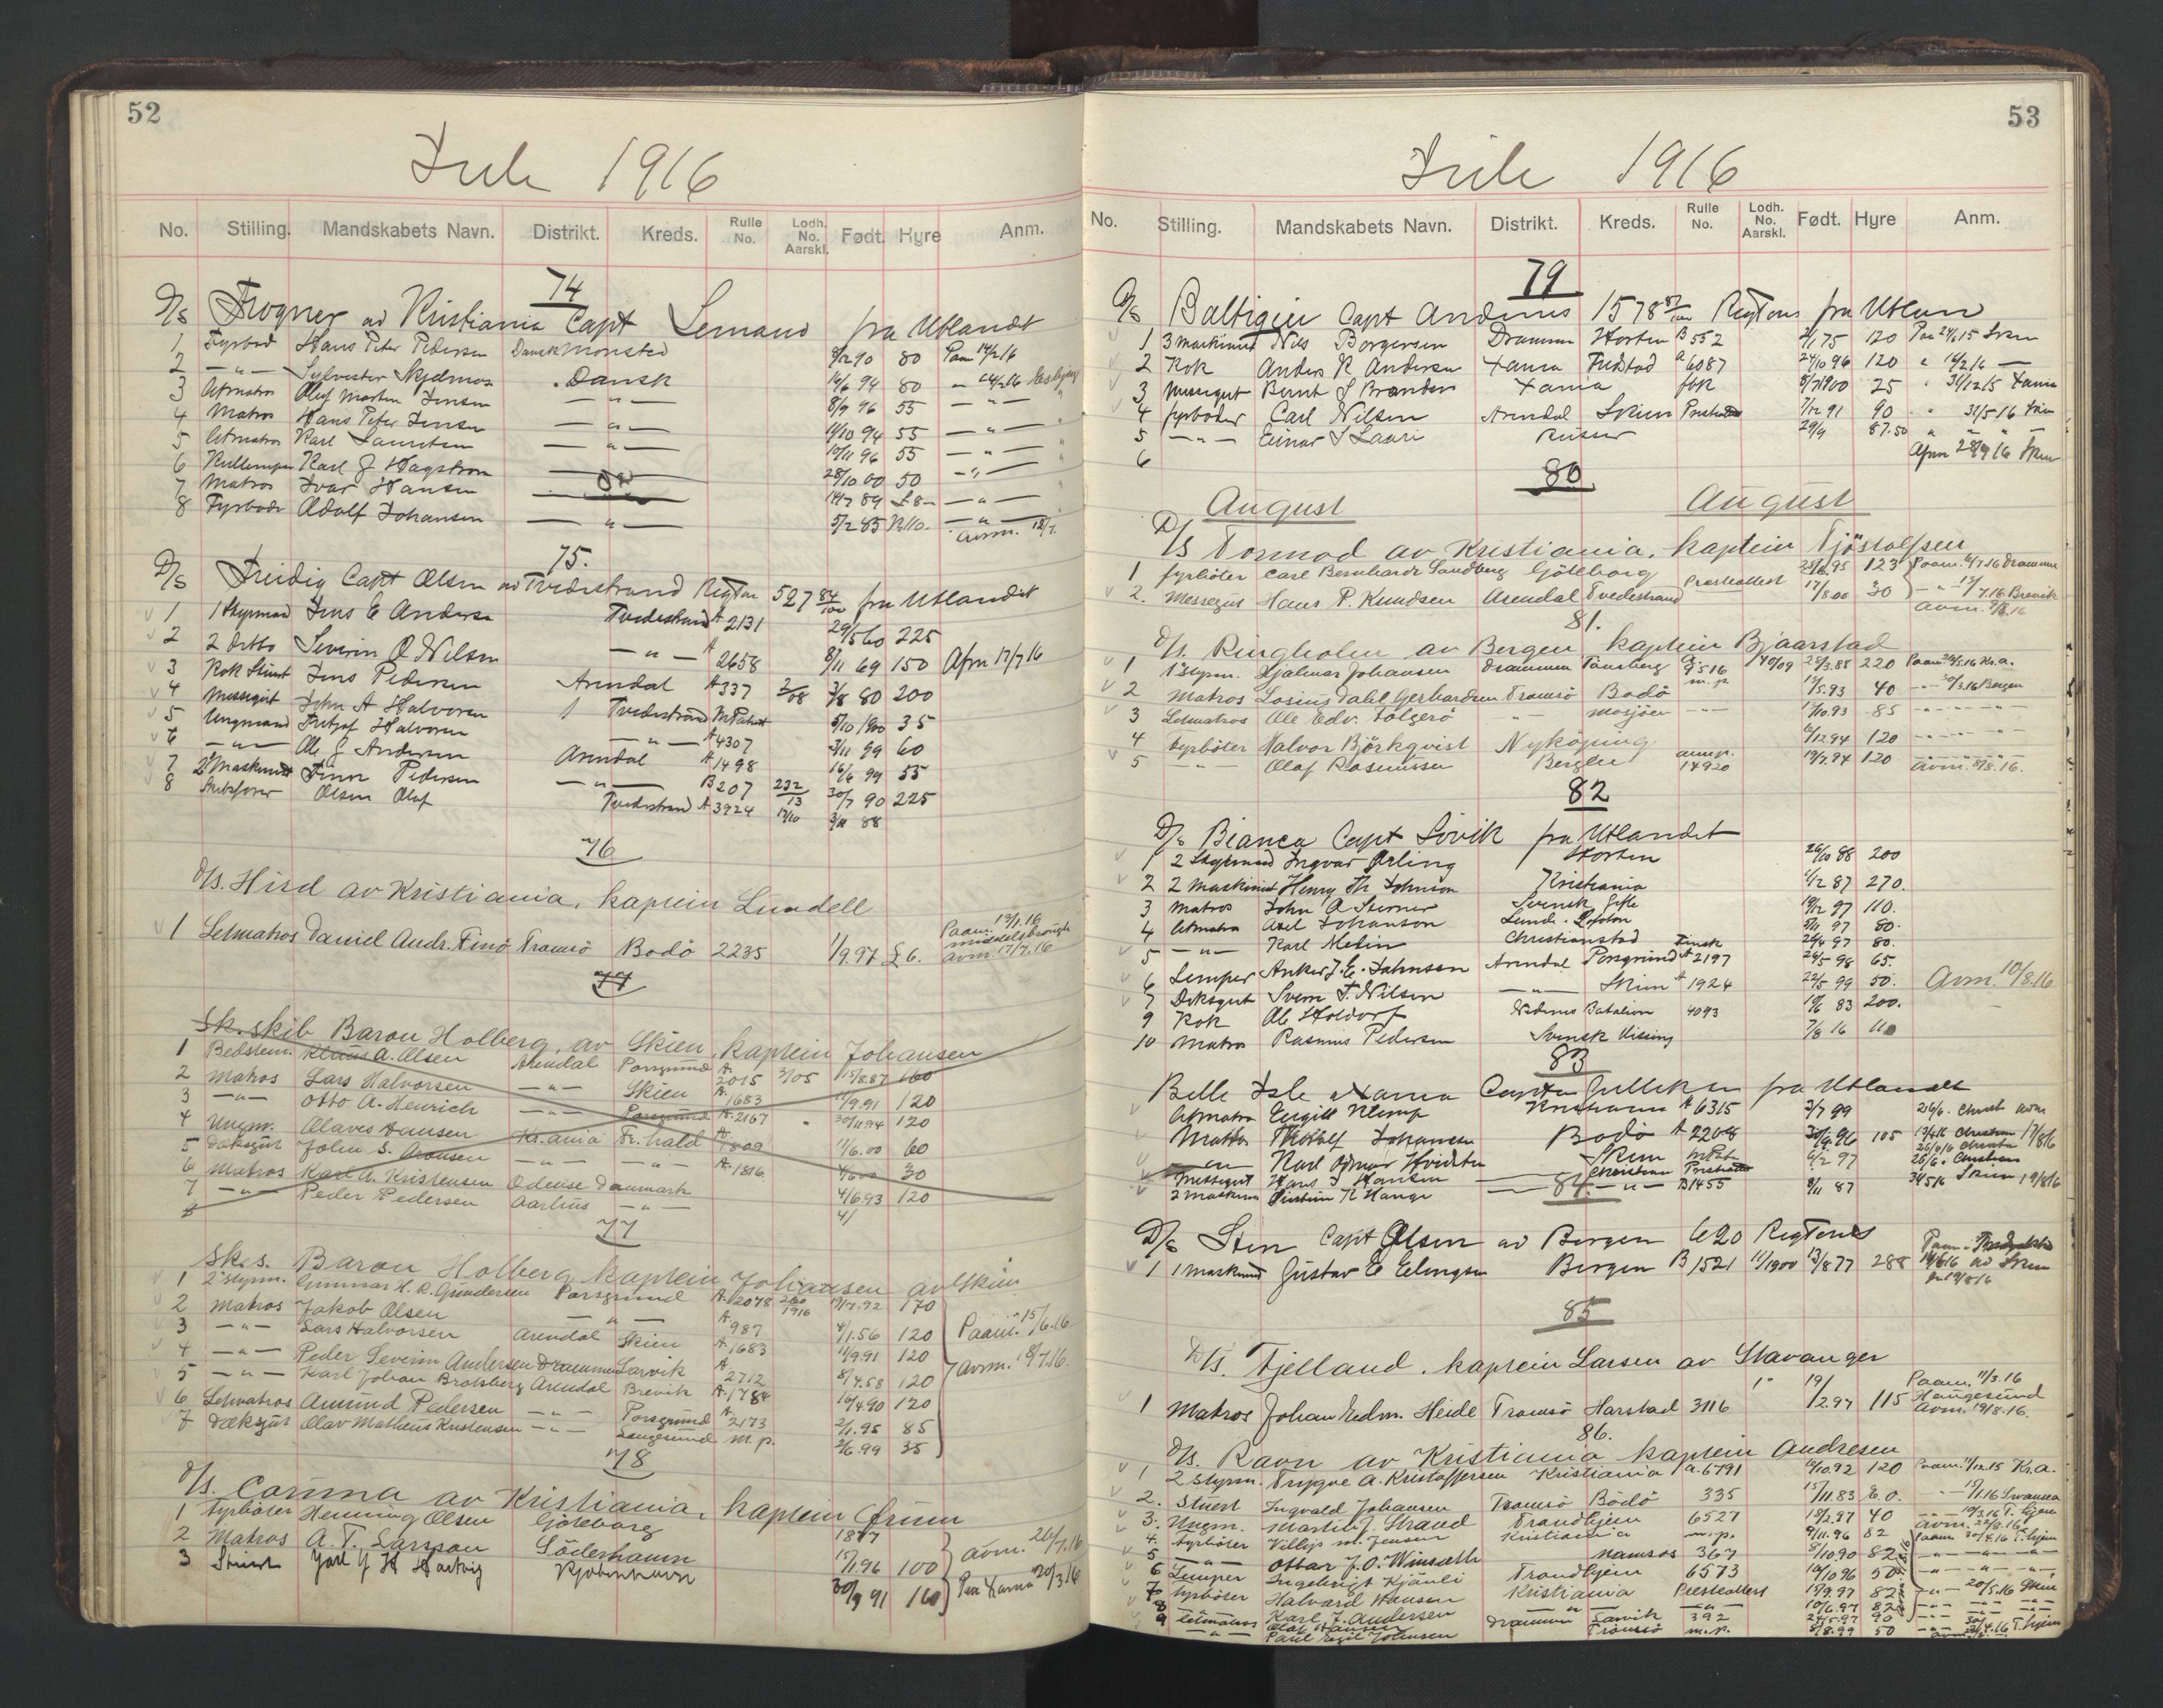 52
Juli 1916
No. Stilling. Mandskabets Navn. Distrikt. Kreds. Rulle No. Lodh. No. Aarskl. Født. Hyre Anm.
74
D/s Frogner av Kristiania Capt Lemand fra Utlandet
1 Fyrbød Hans Peter Pedersen Dansk 9/12 90 80 14/2 16
2 —"— Sylvester Dansk 16/6 94 80
3 Letmatros Oluf Morten Jensen —"— 8/9 96 55 —"—
4 Matros Hans Peter Jensen —"— 11/10 94 55 —"—
5 Letmatros Karl Lauritsen —"— 10/11 96 55 —"—
6 Kullemper Karl J Hagstrøm 28/10 00 50 —"—
7 Matros Ivar Hansen 14/7 89 £8— —"—
8 Fyrbødr Adolf Johansen —"— 5/2 85 —"—
Avm. 12/7.
75.
D/s Freidig Capt Olsen av Tvedestrand RegTon 527 84/100 fra Utlandet
1 1 Styrmand Jens E Andersen Tvedestrand A 2131 29/5 60 225
2 2 Ditto Severin O Nilsen —"— A 2658 8/11 69 150 Afm 17/7 16
3 Kok Stuert Jens Pedersen Arendal A 337 2/08 3/8 80 200
4 Messegut John A Halvorsen Tvedestrand 5/10 1900 35
5 Ungmand Fritjof Halvorsen —"— A 4307 3/11 99 60
6 —"— Ole J Andersen Arendal A 1498 16/6 99 55
7 2 Maskinist Finn Pedersen —"— B 207 232/13 30/7 90 225
8 Olsen Oluf Tvedestrand A 3924 17/10 3/11 88
76
D/s. Hisd av Kristiania, kaptein Lundell
1 Letmatros Daniel Andr. Finö Tromsö Bodö 2235 1/9.97 £6. Paam. 13/1.16 middelsbrough avm. 17/7.16
77
Sk.skib Baron Holberg, av Skien, kaptein Johansen
1 Bedstem. Klaus A. Olsen Arendal Porsgrund A. 2015 3/05 15/8.87 160
2 Matros Lars Halvorsen —"— Skien A. 1683 11/9.91 120
3 —"— Otto A. Henrich —"— Porsgrund A. 2167 30/11.94 120
4 Ungm. Olaves Hansen Kr.ania Fr.hald A. 1809 11/6.00 60
5 Dæksgut John S. Aronsen —"— —"— A. 1816 30
6 Matros Karl A. Kristensen Odense Danmark 4/6.93 120
7 —"— Peder Pedersen Aarhus —"— 4/
8
77
Sk.s. Baron Holberg kaptein Johansen av Skien
1 2 Styrm. Gunnar H. R. Gundersen Porsgrund A. 2078 260/1916 19/7.92 170
2 Matros Jakob Olsen —"— A. 987 4/1.56 120 Paam. 15/6.16
3 —"— Lars Halvorsen Arendal Skien A. 1683 11/9.91 120
4 —"— Peder Severin Andersen Drammen Larvik A. 2712 8/4.58 120 avm. 18/7.16.
5 —"— Karl Johan Brotsberg Arendal Brevik A. 1784 16/4.90 120
6 Letmatros Amund Pedersen —"— Porsgrund A. 2173 2/1.95 85
7 Dæksgut Olav Matheus Kristensen —"— Langesund m.p. 2/6.99 35
78
D/s. Corinna av Kristiania, kaptein Grunn
1 Fyrböter Henning Olsen Göteborg 1877
2 Matros A. T. Larsson Söderhamn 15/1.96 100 avm. 26/7.16
3 Stuert Jarl J H Hartvig Kjøbenhavn 30/9 91 160 Paa Xania 20/3 16
53
Juli 1916
No. Stilling. Mandskabets Navn. Distrikt. Kreds. Rulle No. Lodh. No. Aarskl. Født. Hyre Anm.
79
D/s Baltigin Capt Andersens 1578 87/100 RegTons fra Utlan
1 3 Maskinist Nils Borgersen Drammen Horten B 552 2/1 75 120
2 Kok Anders R Andersen Xania Fredstad A 6087 24/10 96 120 " 10/2 16 —
3 Messegut Bernt S Brandsen Xania 5/7 1900 25 " 31/12 15 Xania
4 Fyrbøder Carl Nilsen Arendal Skien 7/12 91 90 " 31/5 16 Skien
5 —"— Einar S Laari Russer 29/9 87.50 " — " —
6 Afm 28/7 16 Skien
80
August August
D/s Tormod av Kristiania, kaptein Tjöstolfsen
1 fyrböter Carl Bernhard Sandberg Göteborg 25/10.95 123 Paam. 6/7.16 Drammen
2. Messegut Hans P. Knudsen Arendal Tvedestrand Presteattest 17/8.00 30 —"— 13/7.16 Brevik
avm. 2/8.16
81.
D/s. Ringholm av Bergen kaptein Bjaarstad
1 1 Styrm. Hjalmar Johansen Drammen Tönsberg 9516 140/09 28/3.88 220 Paam. 20/5.16 Kr.a.
2 Matros Losius Dahl Gerhardsen Tromsö Bodö m.p. 14/5.93 40 —"— 30/3.16 Bergen
3 Letmatros Ole Edv. Tolgerö —"— Mosjöen —"— 17/10.93 85 —"—
4 Fyrböter Halvor Björkqvist Nyköping 6/12.94 120 —"—
5 —"— Olaf Rasmussen Bergen 14920 19/7.94 120 avm. 8/8.16.
82
D/s Bianca Capt Lövik fra Utlandet
1 2 Styrmand Ingvar Ørling Horten 26/10 88 200
2 2 Maskinist Henry Th Johnson Kristiania 6/12 87 270.
3 Matros John A Sterner Svensk Gefle 19/12 97 110.
4 Letmatros Axel Johanson 5/11 97 80.
5 —"— Karl Melin Christianstad Finsk 26/4 97 80.
6 Lemper Anker J. E. Johnsen Arendal Porsgrund A 2197 24/5 98 65.
7 Dæksgut Svein T. Nilsen —"— Skien A 1924 22/5 99 50. Avm. 10/8.16
9 Kok Ole Holdorf Nedenes Batalion 4093 19/6 83 200.
10 Matros Rasmus Pedersen Svensk 7/8 16 110
83
Belle Isle Xania Captein Gulliksen fra Utlandet
Letmatros Engill Klemp Kristiania A 6315 2/7 99 26/6. Christ avm
Matros Thorolf Johansen Bodö A 2208 30/9 96 105 17/8 16
—"— Karl Odmar Hvidsten Skien 6/2 97 26/6.
Messegut Hans I Hansen Christian
2 Maskinist Kristian K Hauge —"— B 1455 8/11 87 Skien 19/8 16
84.
D/s Sten Capt Olsen av Bergen 620 RegTons
1 1 Maskinist Gustav E Erlingsen Bergen B 1521 11/1900 13/8 77 288
85
D/s. Fjelland, kaptein Larsen av Stavanger
1 Matros Johan Edm. Heide Tromsö Harstad 3116 19/2.97 115 Paam. 11/3.16 Haugesund avm. 19/8.16.
86.
D/s. Ravn av Kristiania, kaptein Andresen
1 2 Styrm. Trygve A. Kristoffersen Kristiania A. 6791 6/10.92 120 Paam. 11/12.15 Kr.a.
2. Stuert Ingvald Johansen Tromsö Bodö 335 15/11.83 £.0. —"— 17/1.16 Swansea
3. Ungm. Martin J. Strand Trondhjem 6527 18/2.97 40 —"— 10/3.16 T.hjem
4. Fyrböter Villijs M. Jensen Kristiania m.p. 9/11.96 82 Paam. 20/4.16 T.hjem
5 —"— Ottar J. O. Winsæth Namsos 367 8/10.90 82 —"—
6 Lemper Ingebrigt Kjönli Trondhjem 6573 10/10 96 50 —"—
7 Fyrböter Halvard Hansen Kristiania Presteattest 17/9.97 82 —"— 20/5.16 Skien
8 —"— Karl J. Andersen —"— —"— 10/6.97 82 —"—
9 Letmatros Olaf Hansen Drammen Larvik 392 24/5.97 90 —"—
—"— Paul Egil Johnsen Tromsö m.p. 5/8.99 50 —"— T.hjem